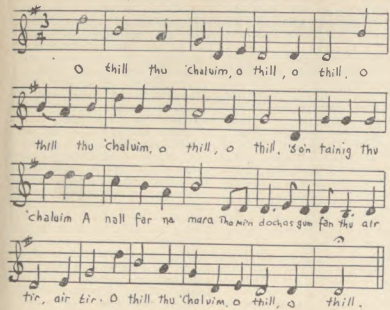 3
4
O thill thu 'chaluim, o thill, o thill. O
thill thu 'chaluim, o thill, o thill, 's o'n tainig thu
'chaluim A nall far na mara Tha mi'n dochas gum fan thu air
tir, air tir. O thill thu 'Chaluim, o thill, o thill.